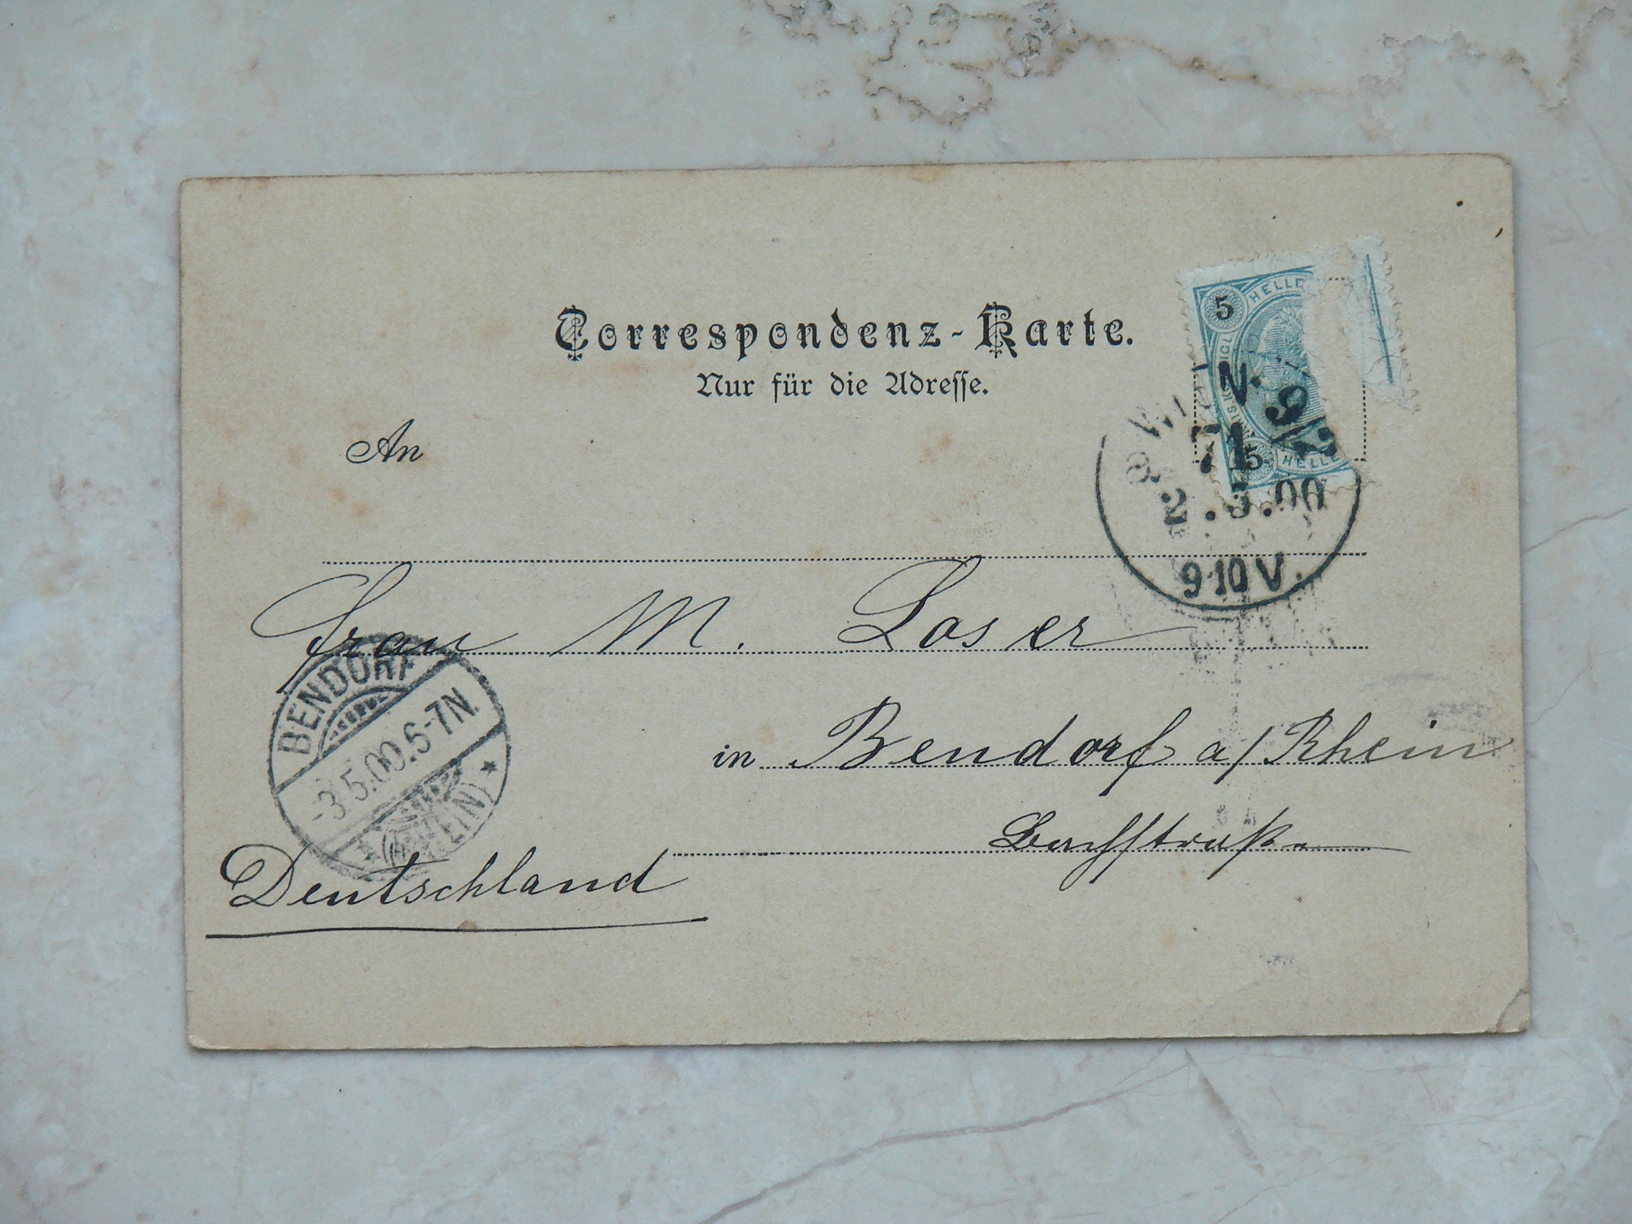 Correspondenz-Karte.
Nur für die Adresse.
5 HELLE
5 HELLE
WIEN 9/2
71
2.5.00
9 10 V.
An
Frau M. Loser
in Bendorf a/Rhein
Bachstraße
BENDORF
-3.5.00.6-7N.
(RHEIN) *
Deutschland